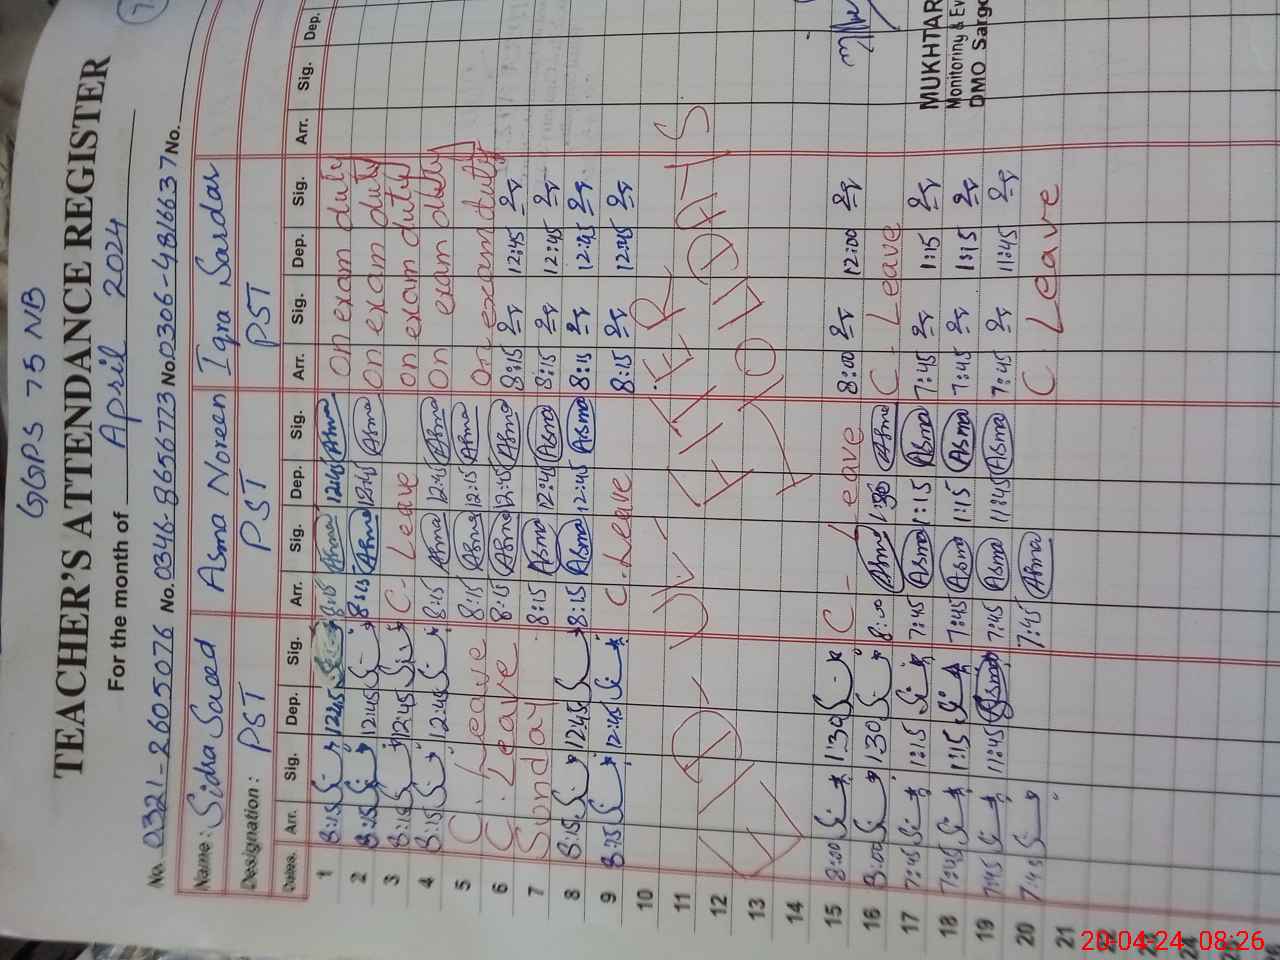 GGPS 75 NB
TEACHER'S ATTENDANCE REGISTER
For the month of April 2024
No. 0321-2605076 No. 0346-8656773 No. 0306-4816637 No.
Name: Sidra Saeed Asma Noreen Iqra Sardar
Designation: PST PST PST
Dates. Arr. Sig. Dep. Sig. Arr. Sig. Dep. Sig. Arr. Sig. Dep. Sig. Arr. Sig. Dep.
1 8:15 12:45 8:15 Asma 12:45 Asma on exam duty
2 8:15 12:45 8:15 Asma 12:45 Asma on exam duty
3 8:15 12:45 C- Leave on exam duty
4 8:15 12:45 8:15 Asma 12:45 Asma on exam duty
5 C. Leave 8:15 Asma 12:15 Asma on exam duty
6 C. Leave 8:15 Asma 12:45 Asma 8:15 12:45
7 Sunday 8:15 Asma 12:45 Asma 8:15 12:45
8 8:15 12:45 8:15 Asma 12:45 Asma 8:15 12:45
9 8:15 12:45 C. Leave 8:15 12:45
10
11
12
13
14
15 8:00 1:30 C - Leave 8:00 12:00
16 8:00 1:30 8:00 Asma 1:30 Asma C- Leave
17 7:45 1:15 7:45 Asma 1:15 Asma 7:45 1:15
18 7:45 1:15 7:45 Asma 1:15 Asma 7:45 1:15
19 7:45 11:45 7:45 Asma 11:45 Asma 7:45 11:45
20 7:45 7:45 Asma C Leave
21
22
23
24
25
MUKHTAR
Monitoring & Ev
DMO Sargo
20-04-24 08:26